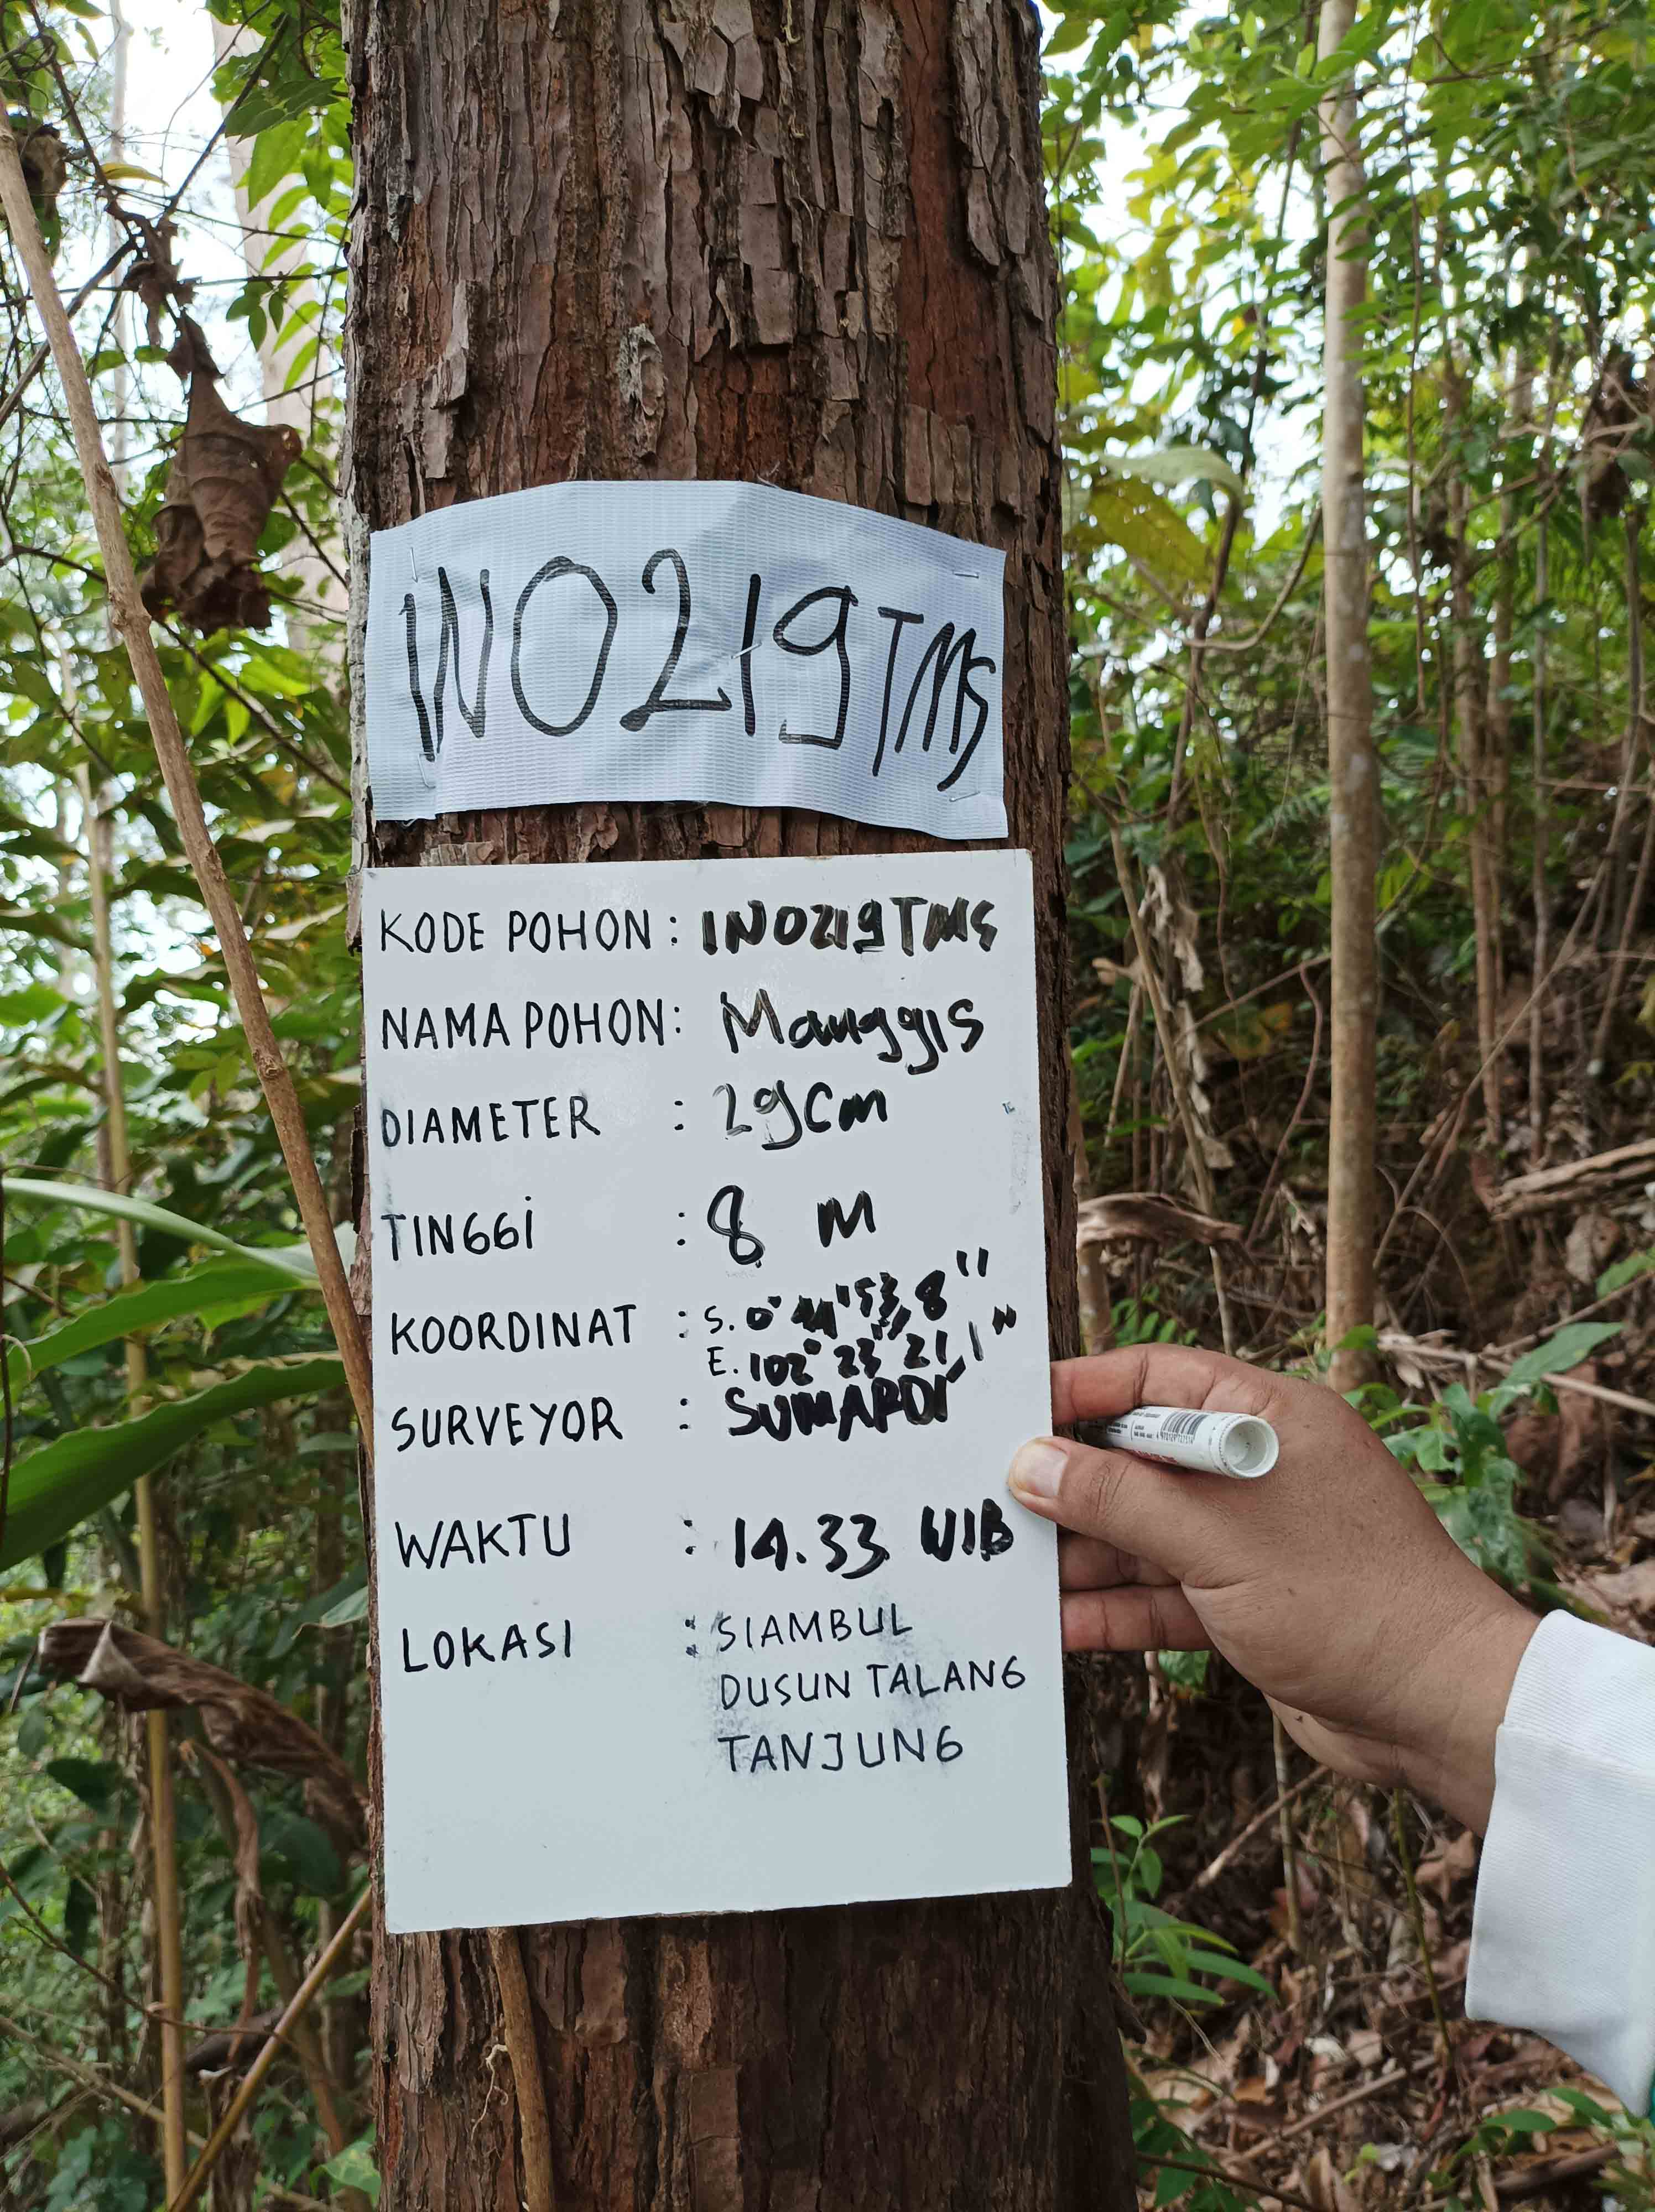 IN0219TMS
KODE POHON : IN0219TMS
NAMA POHON : Manggis
DIAMETER : 29 Cm
TINGGI : 8 M
KOORDINAT : S. 0° 44' 53,8"
E. 102° 23' 21,1"
SURVEYOR : SUMARDI
WAKTU : 14.33 WIB
LOKASI : SIAMBUL
DUSUN TALANG
TANJUNG